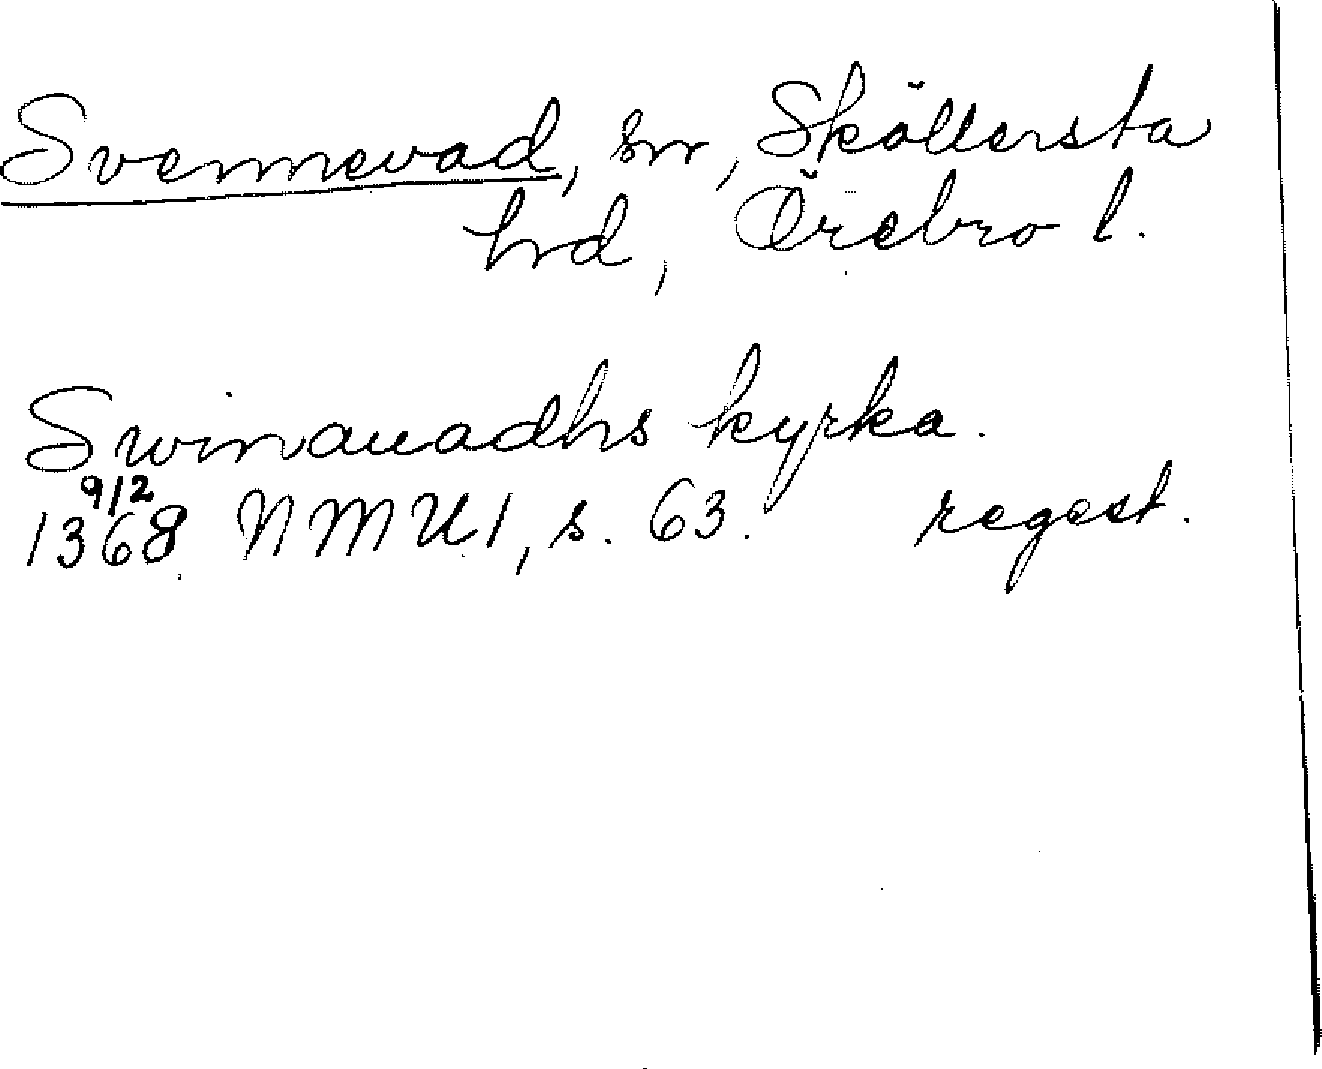 Svennevad, sn, Sköllersta
hrd, Örebro l.
Swinauadhs kyrka.
9/2
1368 NMU I, s. 63. regest.